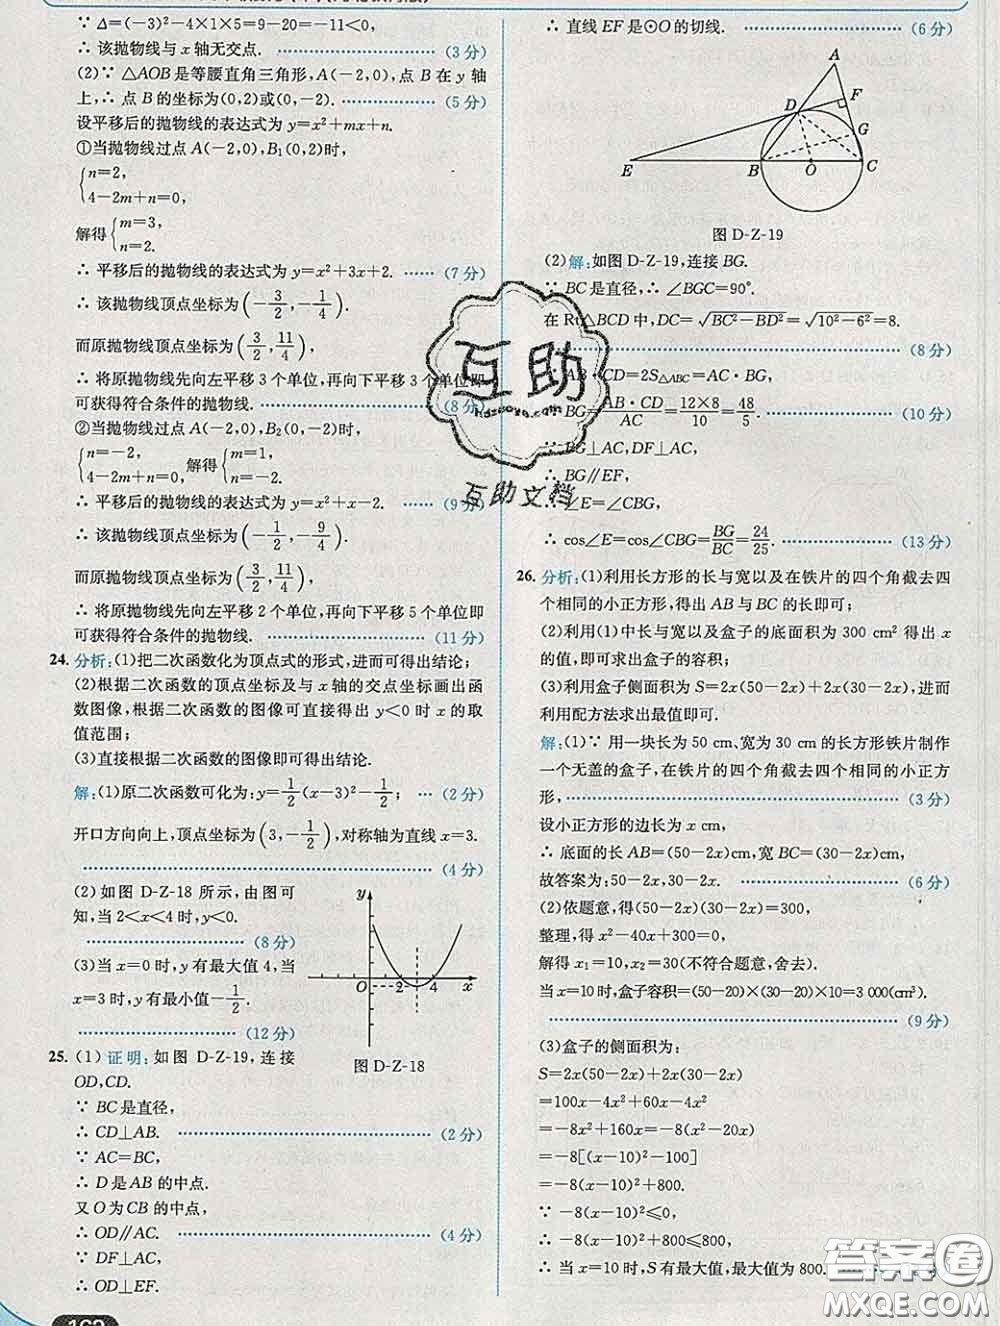 ∵ Δ=(-3)²-4×1×5=9-20=-11<0,
∴ 该抛物线与x轴无交点. (3分)
(2)∵ △AOB是等腰直角三角形,A(-2,0),点B在y轴
上,∴ 点B的坐标为(0,2)或(0,-2). (5分)
设平移后的抛物线的表达式为y=x²+mx+n.
①当抛物线过点A(-2,0),B₁(0,2)时,
{n=2,
4-2m+n=0,
解得{m=3,
n=2.
∴ 平移后的抛物线的表达式为y=x²+3x+2. (7分)
∴ 该抛物线顶点坐标为(-3/2,-1/4).
而原抛物线顶点坐标为(3/2,11/4),
∴ 将原抛物线先向左平移3个单位,再向下平移3个单位即
可获得符合条件的抛物线. (8分)
②当抛物线过点A(-2,0),B₂(0,-2)时,
{n=-2,
4-2m+n=0, 解得{m=1,
n=-2.
∴ 平移后的抛物线的表达式为y=x²+x-2. (9分)
∴ 该抛物线顶点坐标为(-1/2,-9/4).
而原抛物线顶点坐标为(3/2,11/4),
∴ 将原抛物线先向左平移2个单位,再向下平移5个单位即
可获得符合条件的抛物线. (11分)
24. 分析:(1)把二次函数化为顶点式的形式,进而可得出结论;
(2)根据二次函数的顶点坐标及与x轴的交点坐标画出函
数图像,根据二次函数的图像可直接得出y<0时x的取
值范围;
(3)直接根据二次函数的图像即可得出结论.
解:(1)原二次函数可化为:y=1/2(x-3)²-1/2; (2分)
开口方向向上,顶点坐标为(3,-1/2),对称轴为直线x=3.
(4分)
(2)如图D-Z-18所示,由图可
知,当2<x<4时,y<0.
(8分)
(3)当x=0时,y有最大值4,当
x=3时,y有最小值-1/2.
(12分)
y
O 2 4 x
图D-Z-18
25. (1)证明:如图D-Z-19,连接
OD,CD.
∵ BC是直径,
∴ CD⊥AB. (2分)
∵ AC=BC,
∴ D是AB的中点.
又O为CB的中点,
∴ OD∥AC. (4分)
∵ DF⊥AC,
∴ OD⊥EF.
∴ 直线EF是⊙O的切线. (6分)
A
D F
G
E B O C
图D-Z-19
(2)解:如图D-Z-19,连接BG.
∵ BC是直径,∴ ∠BGC=90°.
在Rt△BCD中,DC=√BC²-BD²=√10²-6²=8.
(8分)
CD=2S△ABC=AC·BG,
BG=AB·CD/AC=12×8/10=48/5. (10分)
∵ BG⊥AC,DF⊥AC,
∴ BG∥EF,
∴ ∠E=∠CBG,
∴ cos∠E=cos∠CBG=BG/BC=24/25. (13分)
26. 分析:(1)利用长方形的长与宽以及在铁片的四个角截去四
个相同的小正方形,得出AB与BC的长即可;
(2)利用(1)中长与宽以及盒子的底面积为300 cm²得出x
的值,即可求出盒子的容积;
(3)利用盒子侧面积为S=2x(50-2x)+2x(30-2x),进而
利用配方法求出最值即可.
解:(1)∵ 用一块长为50 cm、宽为30 cm的长方形铁片制作
一个无盖的盒子,在铁片的四个角截去四个相同的小正方
形, (3分)
设小正方形的边长为x cm,
∴ 底面的长AB=(50-2x)cm,宽BC=(30-2x)cm,
故答案为:50-2x,30-2x. (6分)
(2)依题意,得(50-2x)(30-2x)=300,
整理,得x²-40x+300=0,
解得x₁=10,x₂=30(不符合题意,舍去).
当x=10时,盒子容积=(50-20)×(30-20)×10=3 000(cm³).
(9分)
(3)盒子的侧面积为:
S=2x(50-2x)+2x(30-2x)
=100x-4x²+60x-4x²
=-8x²+160x=-8(x²-20x)
=-8[(x-10)²-100]
=-8(x-10)²+800,
∵ -8(x-10)²≤0,
∴ -8(x-10)²+800≤800,
∴ 当x=10时,S有最大值,最大值为800.
互助
hdzoxa.com
互助文档
答案圈
MXQE.COM